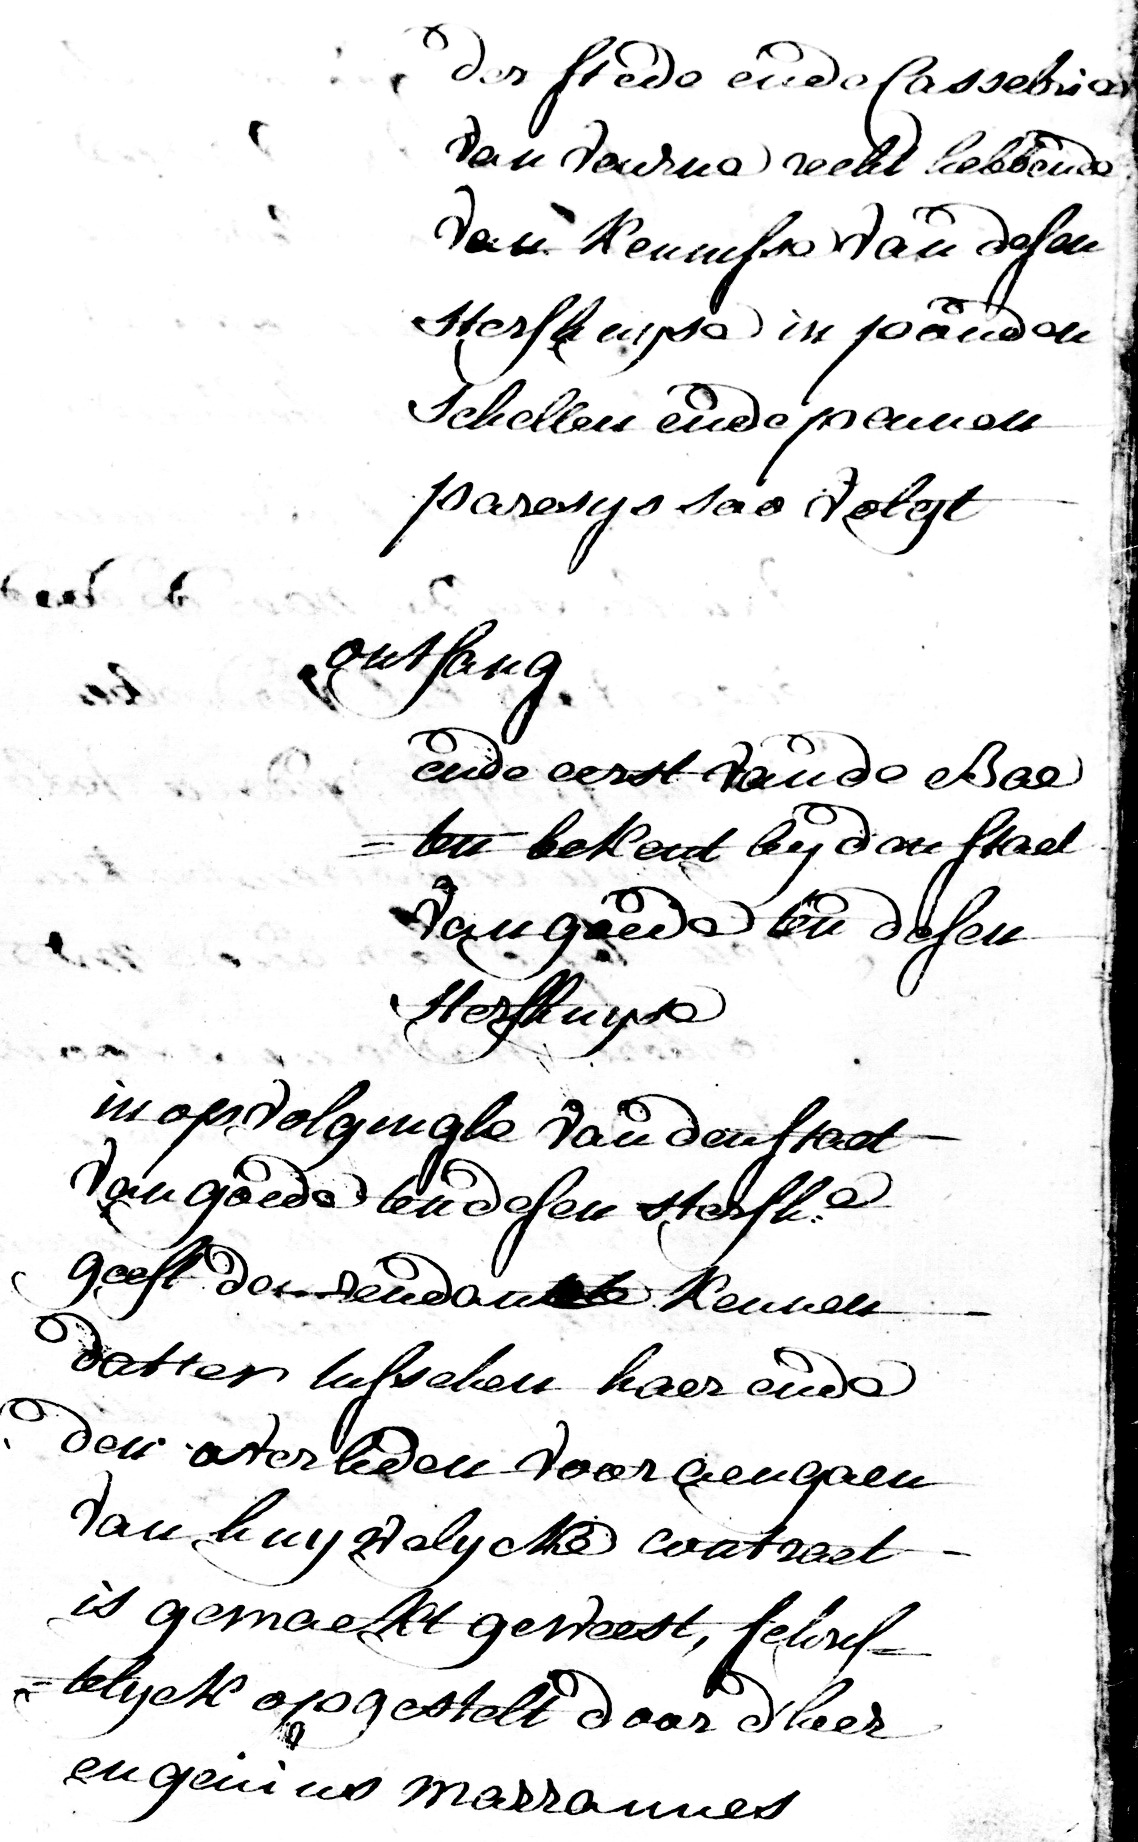 der stede ende Casselrie
van veurne recht hebbende
van kennisse van desen
sterfhuyse in ponden
schellen ende pennen
paresys soo volgt
ontfang
ende eerst van de Bae
=ten bekent by den staet
van goede ten desen
sterfhuyse
in opvolginghe van den staet
van goede ten desen sterfh:e
geeft den rendante kennen
datter tusschen haer ende
den overleden voorgengaen
van huywelycke contract
is gemaekt geweest, schrif-
=telyck opgestelt door d'heer
eugenius marrannes